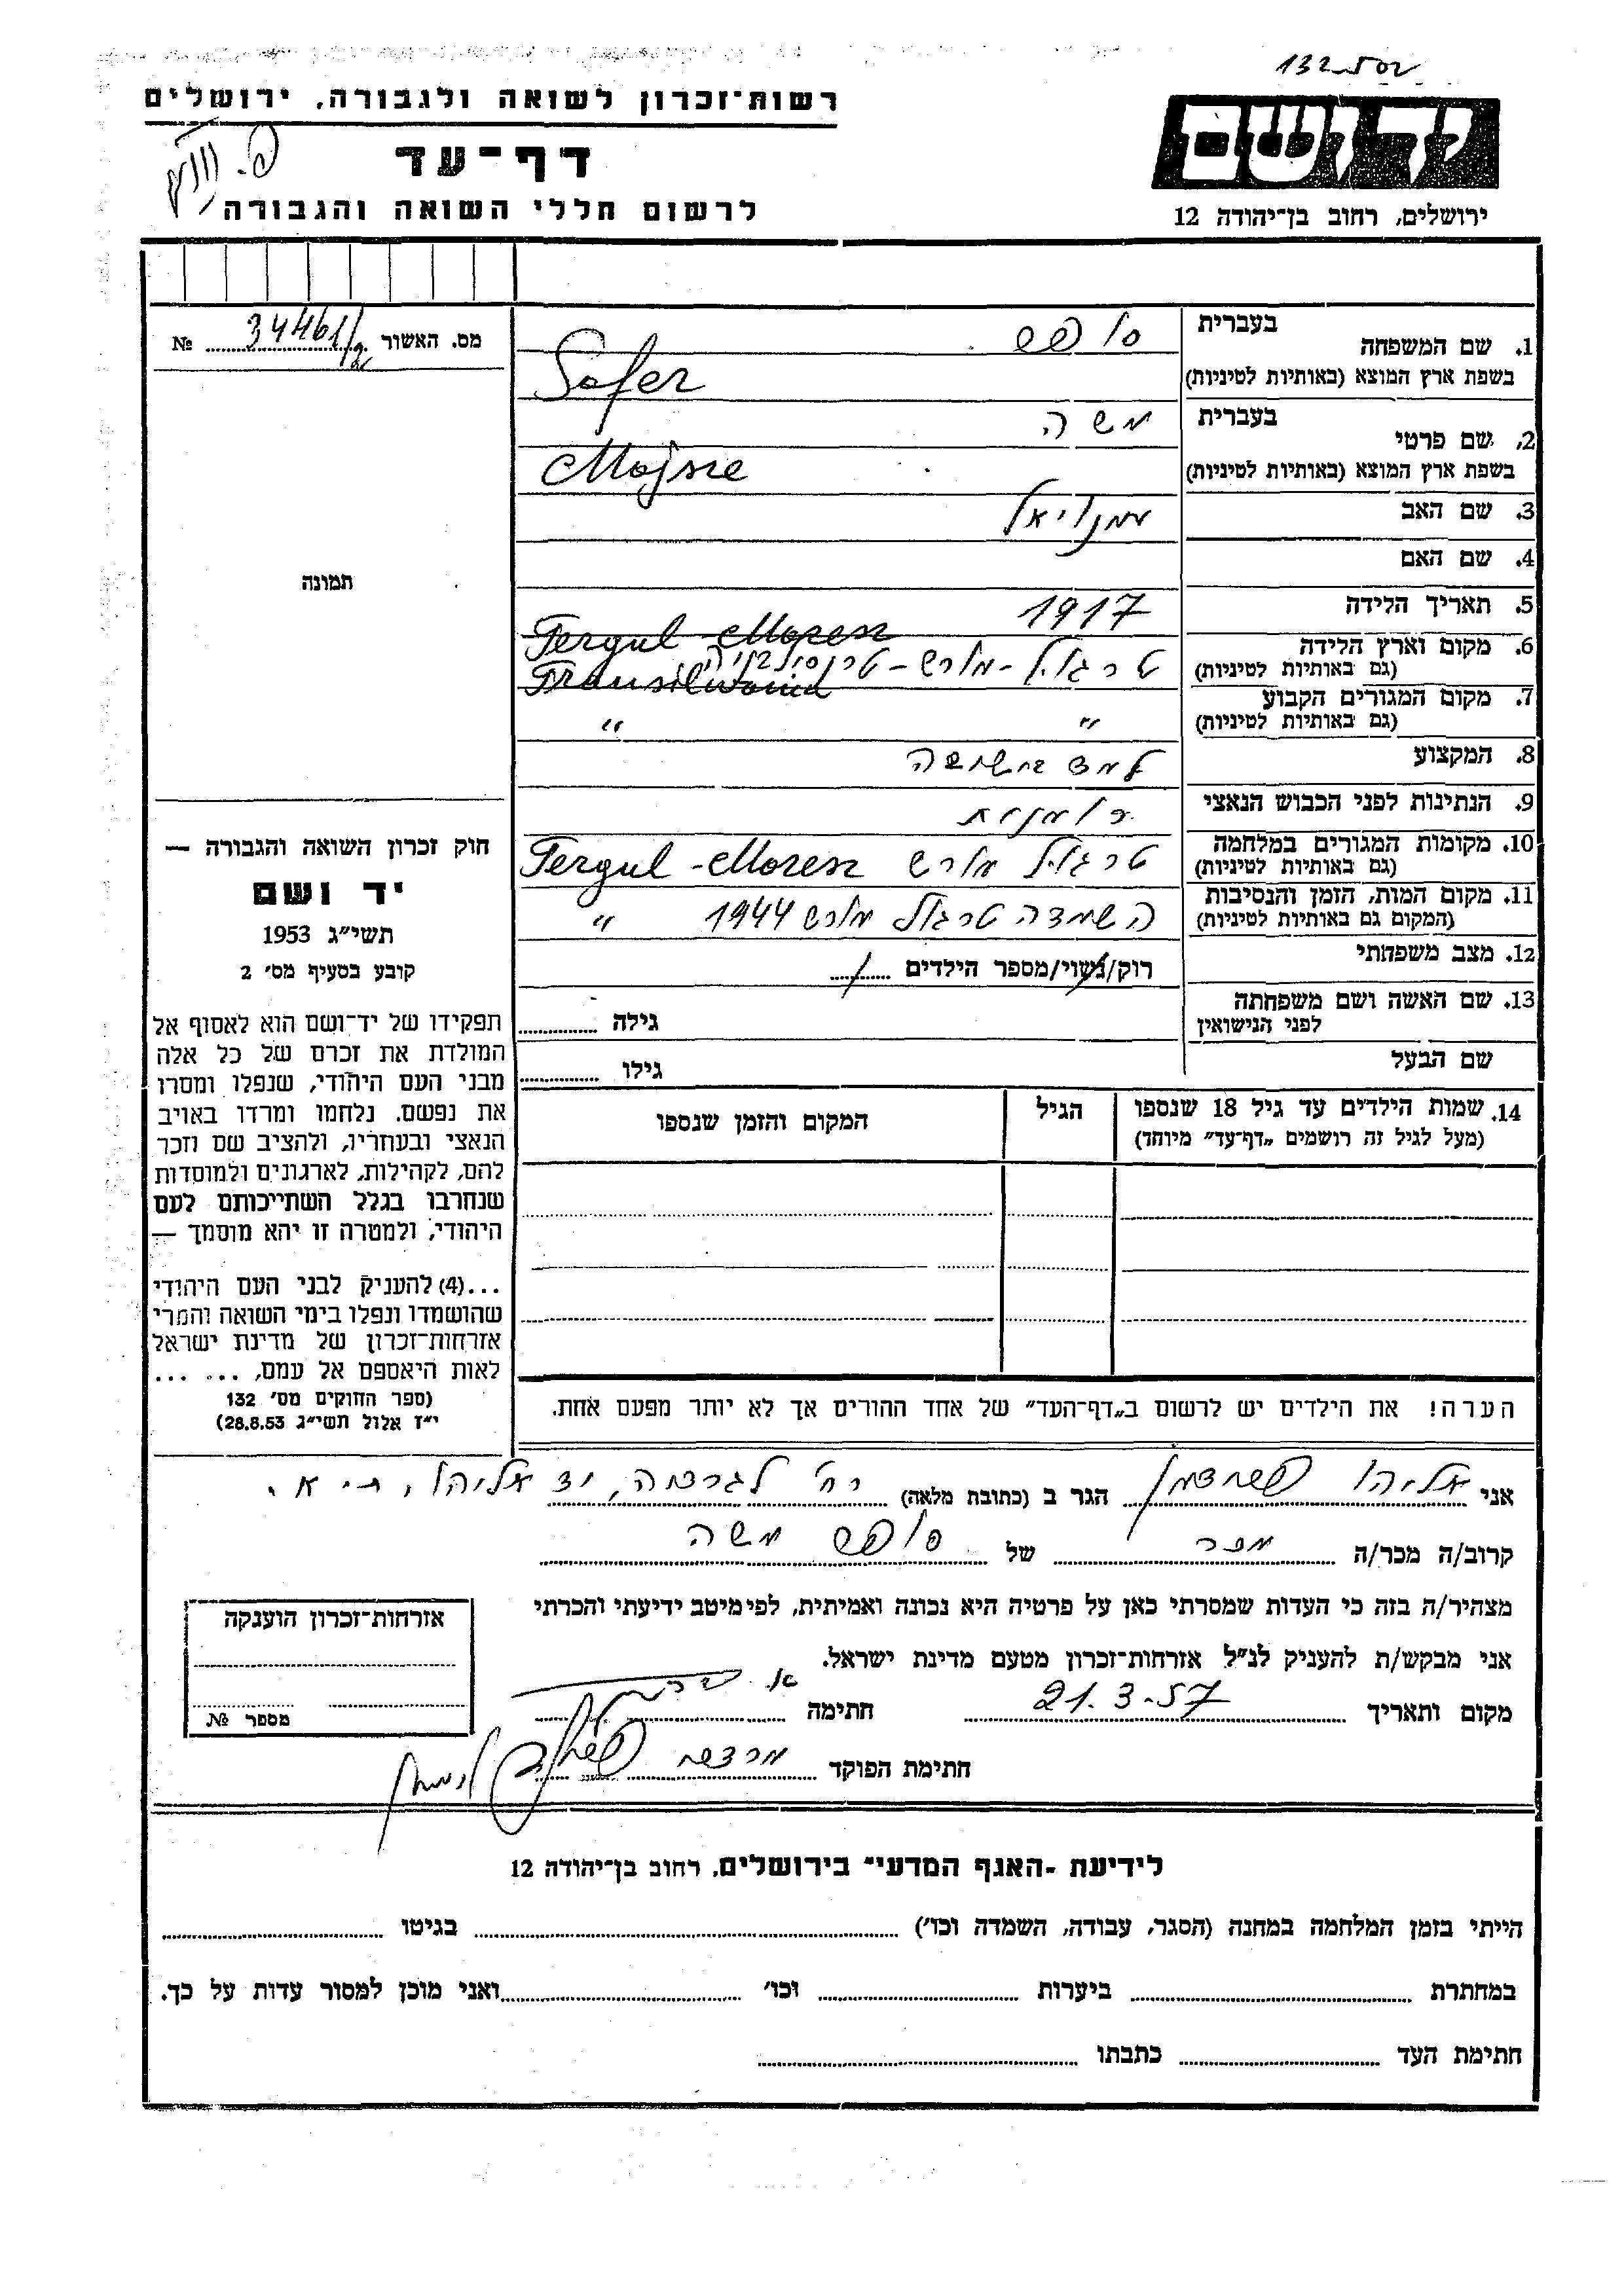 132502
רשות־זכרון לשואה ולגבורה, ירושלים
יד ושם
דף־עד
לרשום חללי השואה והגבורה
ירושלים, רחוב בן־יהודה 12
מס. האשור 34461/2 №
1. שם המשפחה בעברית סופר
בשפת ארץ המוצא (באותיות לטיניות) Sofer
2. שם פרטי בעברית משה
בשפת ארץ המוצא (באותיות לטיניות) Mojsze
3. שם האב עמנויאל
4. שם האם
5. תאריך הלידה 1917
6. מקום וארץ הלידה Tergul-Moresz
(גם באותיות לטיניות) טרגול-מורש-טרנסילבניה
Transilwania
7. מקום המגורים הקבוע " "
(גם באותיות לטיניות)
8. המקצוע למד בישיבה
9. הנתינות לפני הכבוש הנאצי רומנית
10. מקומות המגורים במלחמה טרגול מורש Tergul-Moresz
(גם באותיות לטיניות)
11. מקום המות, הזמן והנסיבות השמדה טרגול מורש 1944 "
(המקום גם באותיות לטיניות)
12. מצב משפחתי רוק/נשוי/מספר הילדים /
13. שם האשה ושם משפחתה גילה
לפני הנישואין
שם הבעל גילו
14. שמות הילדים עד גיל 18 שנספו הגיל המקום והזמן שנספו
(מעל לגיל זה רושמים „דף־עד” מיוחד)
הערה! את הילדים יש לרשום ב„דף־העד” של אחד ההורים אך לא יותר מפעם אחת.
תמונה
חוק זכרון השואה והגבורה —
יד ושם
תשי״ג 1953
קובע בסעיף מס׳ 2
תפקידו של יד־ושם הוא לאסוף אל
המולדת את זכרם של כל אלה
מבני העם היהודי, שנפלו ומסרו
את נפשם. נלחמו ומרדו באויב
הנאצי ובעוזריו, ולהציב שם וזכר
להם, לקהילות, לארגונים ולמוסדות
שנחרבו בגלל השתייכותם לעם
היהודי, ולמטרה זו יהא מוסמך —
...(4) להעניק לבני העם היהודי
שהושמדו ונפלו בימי השואה והמרי
אזרחות־זכרון של מדינת ישראל
לאות היאספם אל עמם, ... ...
(ספר החוקים מס׳ 132
י״ז אלול תשי״ג 28.8.53)
אני אליהו הגר ב (כתובת מלאה) רח׳ יד אליהו, ת״א.
קרוב/ה מכר/ה מכר של סופר משה
מצהיר/ה בזה כי העדות שמסרתי כאן על פרטיה היא נכונה ואמיתית, לפי מיטב ידיעתי והכרתי
אני מבקש/ת להעניק לנ״ל אזרחות־זכרון מטעם מדינת ישראל.
מקום ותאריך 21.3.57 חתימה
חתימת הפוקד
אזרחות־זכרון הוענקה
מספר №
לידיעת ״האגף המדעי״ בירושלים, רחוב בן־יהודה 12
הייתי בזמן המלחמה במחנה (הסגר, עבודה, השמדה וכו׳) בגיטו
במחתרת ביערות וכו׳ ואני מוכן למסור עדות על כך.
חתימת העד כתבתו